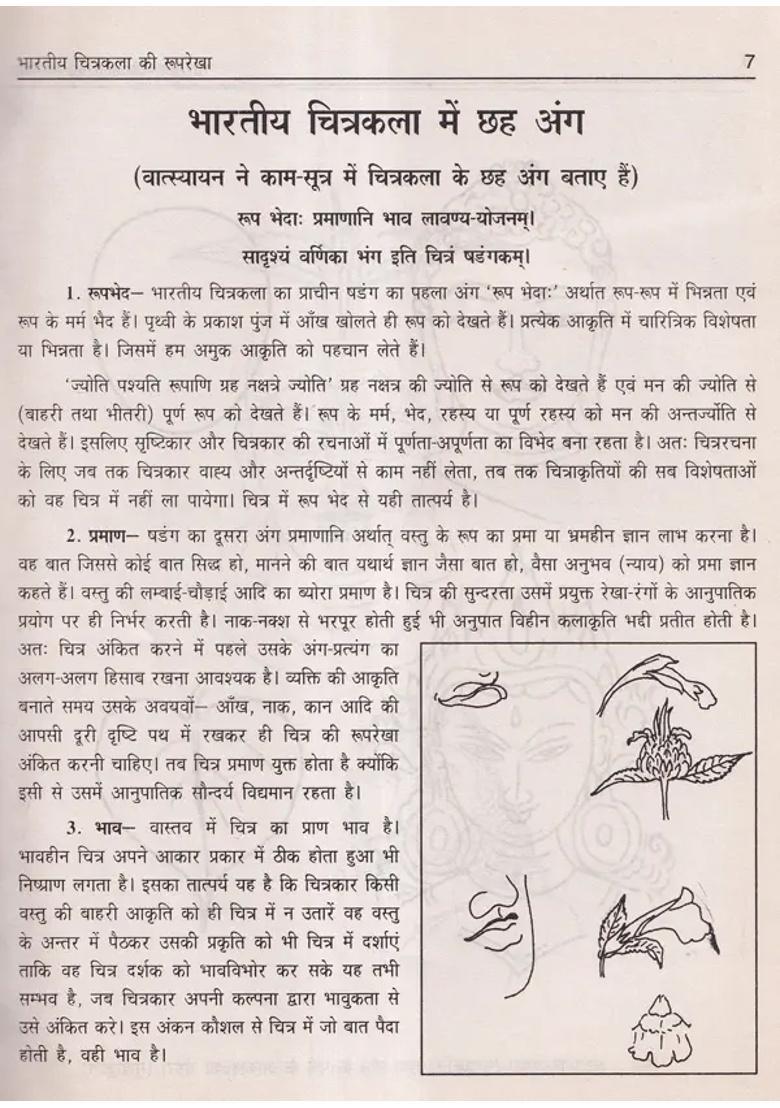 भारतीय चित्रकला की रूपरेखा 7
भारतीय चित्रकला में छह अंग
(वात्स्यायन ने काम-सूत्र में चित्रकला के छह अंग बताए हैं)
रूप भेदाः प्रमाणानि भाव लावण्य-योजनम्।
सादृश्यं वर्णिका भंग इति चित्रं षडंगकम्।
1. रूपभेद– भारतीय चित्रकला का प्राचीन षडंग का पहला अंग ‘रूप भेदाः’ अर्थात रूप-रूप में भिन्नता एवं
रूप के मर्म भैद हैं। पृथ्वी के प्रकाश पुंज में आँख खोलते ही रूप को देखते हैं। प्रत्येक आकृति में चारित्रिक विशेषता
या भिन्नता है। जिसमें हम अमुक आकृति को पहचान लेते हैं।
‘ज्योति पश्यति रूपाणि ग्रह नक्षत्रे ज्योति’ ग्रह नक्षत्र की ज्योति से रूप को देखते हैं एवं मन की ज्योति से
(बाहरी तथा भीतरी) पूर्ण रूप को देखते हैं। रूप के मर्म, भेद, रहस्य या पूर्ण रहस्य को मन की अन्तर्ज्योति से
देखते हैं। इसलिए सृष्टिकार और चित्रकार की रचनाओं में पूर्णता-अपूर्णता का विभेद बना रहता है। अतः चित्ररचना
के लिए जब तक चित्रकार वाह्य और अन्तर्दृष्टियों से काम नहीं लेता, तब तक चित्राकृतियों की सब विशेषताओं
को वह चित्र में नहीं ला पायेगा। चित्र में रूप भेद से यही तात्पर्य है।
2. प्रमाण– षडंग का दूसरा अंग प्रमाणानि अर्थात् वस्तु के रूप का प्रमा या भ्रमहीन ज्ञान लाभ करना है।
वह बात जिससे कोई बात सिद्ध हो, मानने की बात यथार्थ ज्ञान जैसा बात हो, वैसा अनुभव (न्याय) को प्रमा ज्ञान
कहते हैं। वस्तु की लम्बाई-चौड़ाई आदि का ब्योरा प्रमाण है। चित्र की सुन्दरता उसमें प्रयुक्त रेखा-रंगों के आनुपातिक
प्रयोग पर ही निर्भर करती है। नाक-नक्श से भरपूर होती हुई भी अनुपात विहीन कलाकृति भद्दी प्रतीत होती है।
अतः चित्र अंकित करने में पहले उसके अंग-प्रत्यंग का
अलग-अलग हिसाब रखना आवश्यक है। व्यक्ति की आकृति
बनाते समय उसके अवयवों– आँख, नाक, कान आदि की
आपसी दूरी दृष्टि पथ में रखकर ही चित्र की रूपरेखा
अंकित करनी चाहिए। तब चित्र प्रमाण युक्त होता है क्योंकि
इसी से उसमें आनुपातिक सौन्दर्य विद्यमान रहता है।
3. भाव– वास्तव में चित्र का प्राण भाव है।
भावहीन चित्र अपने आकार प्रकार में ठीक होता हुआ भी
निष्प्राण लगता है। इसका तात्पर्य यह है कि चित्रकार किसी
वस्तु की बाहरी आकृति को ही चित्र में न उतारें वह वस्तु
के अन्तर में पैठकर उसकी प्रकृति को भी चित्र में दर्शाएं
ताकि वह चित्र दर्शक को भावविभोर कर सके यह तभी
सम्भव है, जब चित्रकार अपनी कल्पना द्वारा भावुकता से
उसे अंकित करे। इस अंकन कौशल से चित्र में जो बात पैदा
होती है, वही भाव है।